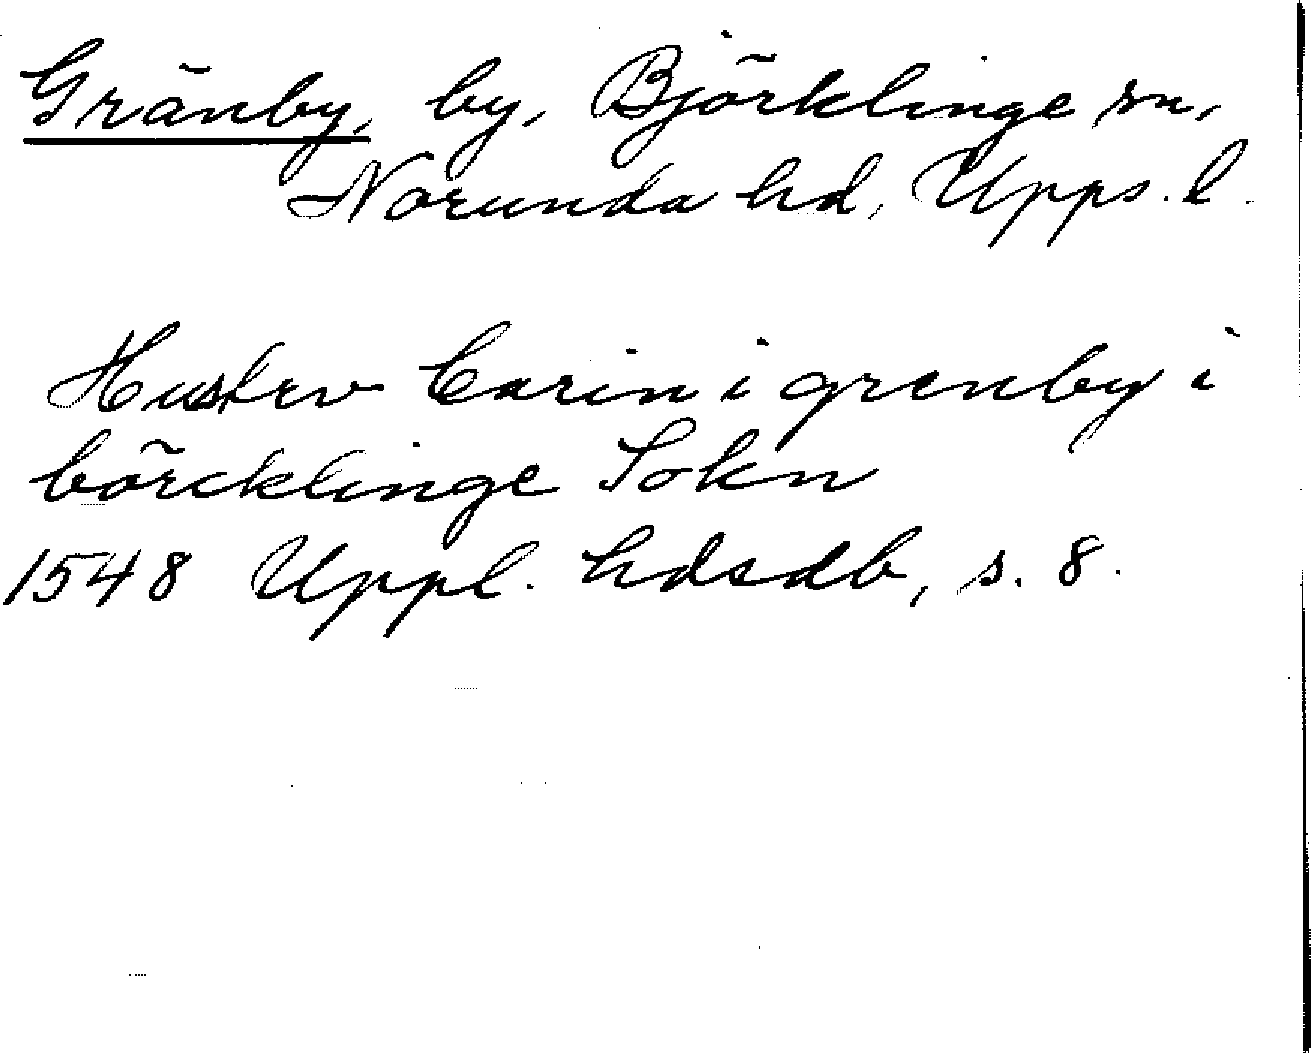 Gränby, by, Björklinge sn,
Norunda hd, Upps. l.
Hustrv Carin i grenby i
börcklinge Sokn
1548 Uppl. hdsdb, s. 8.